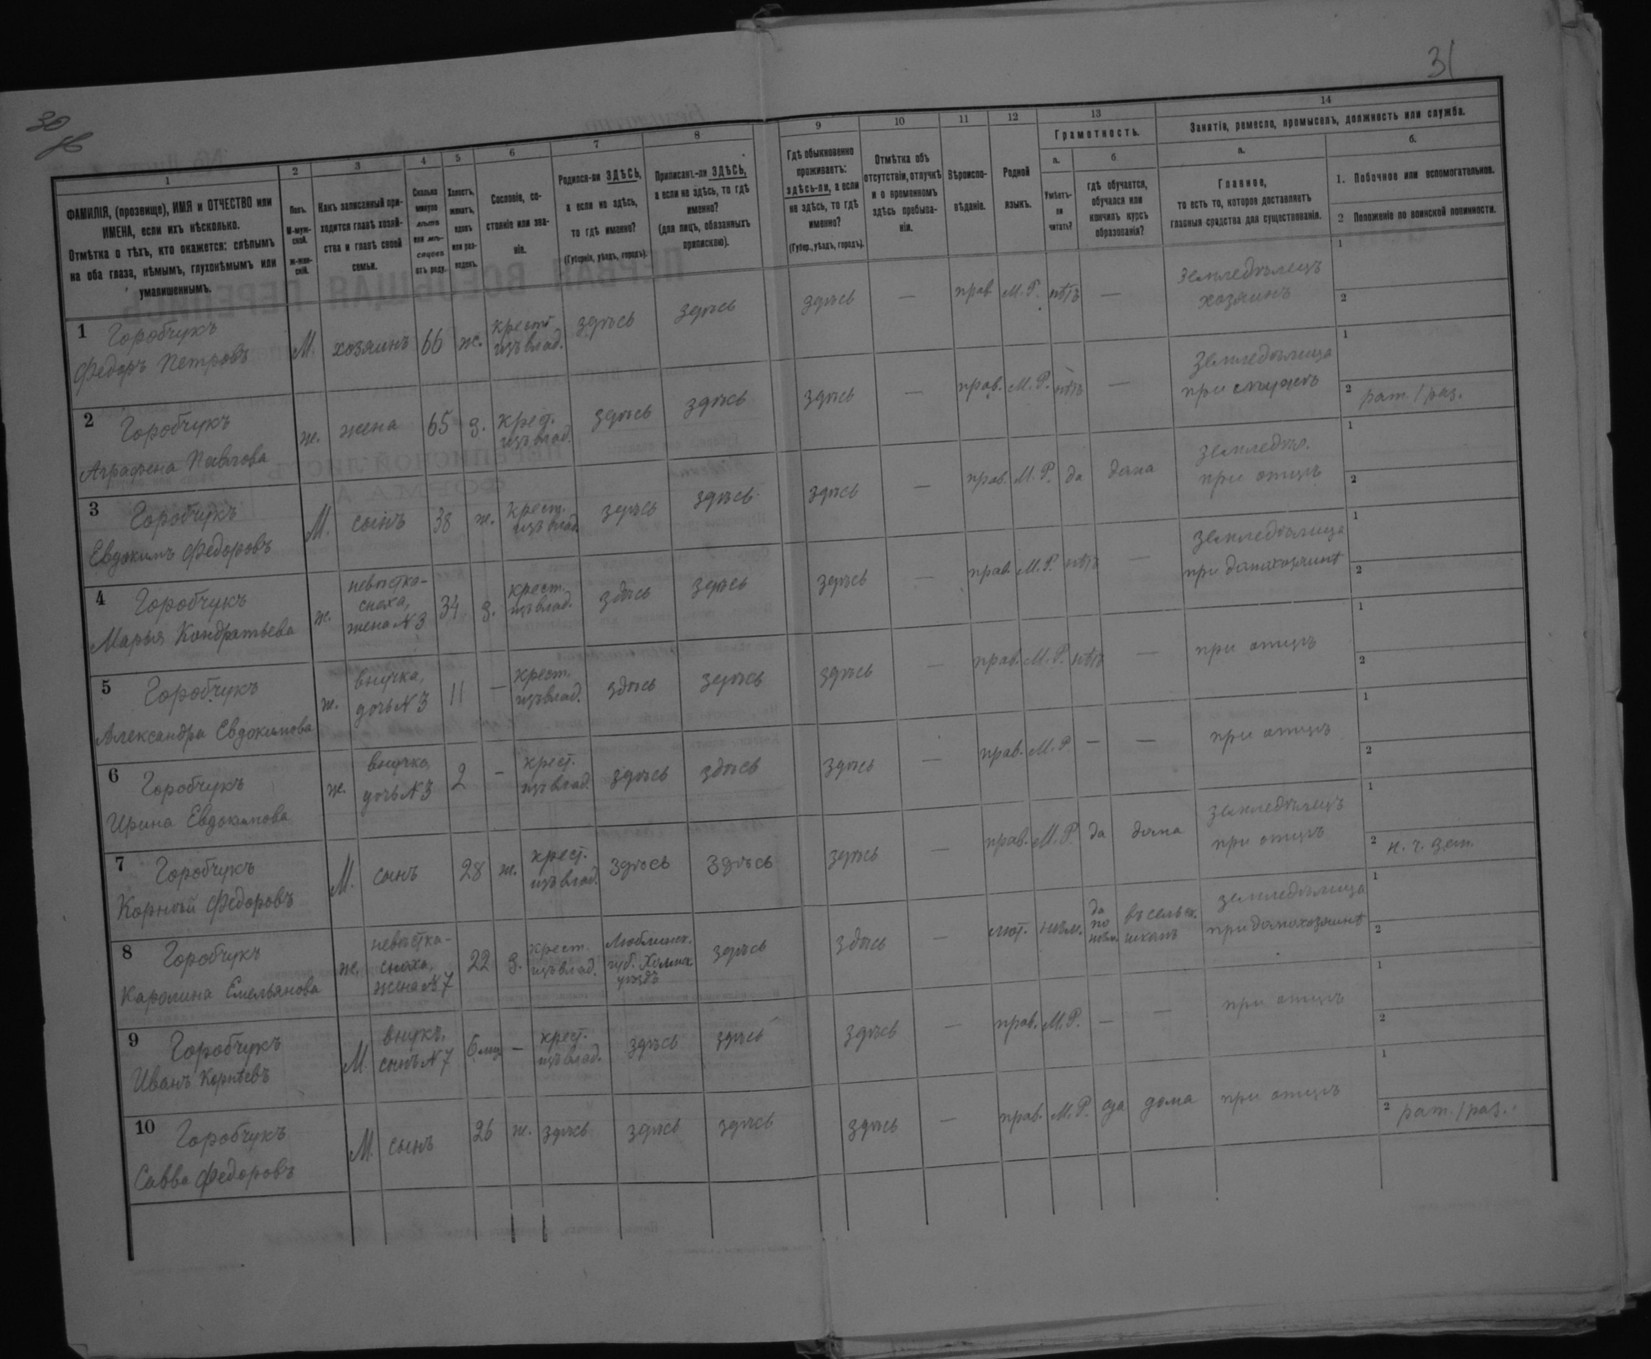 30
31
1
2
3
4
5
6
7
8
9
10
11
12
13
14
ФАМИЛІЯ, (прозвище), ИМЯ и ОТЧЕСТВО или
ИМЕНА, если ихъ нѣсколько.
Отмѣтка о тѣхъ, кто окажется: слѣпымъ
на оба глаза, нѣмымъ, глухонѣмымъ или
умалишеннымъ.
Полъ.
М-муж-
ской.
Ж-жен-
скій.
Какъ записанный при-
ходится главѣ хозяй-
ства и главѣ своей
семьи.
Сколько
минуло
лѣтъ
или мѣ-
сяцевъ
отъ роду.
Холостъ,
женатъ,
вдовъ
или раз-
веденъ.
Сословіе, со-
стояніе или зва-
ніе.
Родился-ли ЗДѢСЬ,
а если не здѣсь,
то гдѣ именно?
(Губернія, уѣздъ, городъ).
Приписанъ-ли ЗДѢСЬ,
а если не здѣсь, то гдѣ
именно?
(для лицъ, обязанныхъ
припискою).
Гдѣ обыкновенно
проживаетъ:
здѣсь-ли, а если
не здѣсь, то гдѣ
именно?
(Губер., уѣздъ, городъ).
Отмѣтка объ
отсутствіи, отлучкѣ
и о временномъ
здѣсь пребыва-
ніи.
Вѣроиспо-
вѣданіе.
Родной
языкъ.
Грамотность.
а.
Умѣетъ-
ли
читать?
б
гдѣ обучается,
обучался или
кончилъ курсъ
образованія?
Занятіе, ремесло, промыселъ, должность или служба.
а.
Главное,
то есть то, которое доставляетъ
главныя средства для существованія.
б.
1. Побочное или вспомогательное.
2 Положеніе по воинской повинности.
1 Горобчукъ
Федоръ Петровъ
М. хозяинъ 66 ж. крест. изъ влад. здѣсь здѣсь здѣсь — прав. М. Р. нѣтъ — Земледѣлецъ хозяинъ 1 2
2 Горобчукъ
Аграфена Павлова
ж. жена 65 з. крест. изъ влад. здѣсь здѣсь здѣсь — прав. М. Р. нѣтъ — Земледѣлица при мужѣ 1 2 рат. 1 раз.
3 Горобчукъ
Евдокимъ Федоровъ
М. сынъ 38 ж. крест. изъ влад. здѣсь здѣсь здѣсь — прав. М. Р. да дома земледѣл. при отцѣ 1 2
4 Горобчукъ
Марья Кондратьева
ж. невѣстка-сноха, жена №3 34 з. крест. изъ влад. здѣсь здѣсь здѣсь — прав. М. Р. нѣтъ — земледѣлица при домохозяинѣ 1 2
5 Горобчукъ
Александра Евдокимова
ж. внучка, дочь №3 11 — крест. изъ влад. здѣсь здѣсь здѣсь — прав. М. Р. нѣтъ — при отцѣ 1 2
6 Горобчукъ
Ирина Евдокимова
ж. внучка, дочь №3 2 — крест. изъ влад. здѣсь здѣсь здѣсь — прав. М. Р — — при отцѣ 1 2
7 Горобчукъ
Корнѣй Федоровъ
М. сынъ 28 ж. крест. изъ влад. здѣсь здѣсь здѣсь — прав. М. Р. да дома земледѣлецъ при отцѣ 1 2 н. ч. зап.
8 Горобчукъ
Каролина Емельянова
ж. невѣстка-сноха, жена №7 22 з. крест. изъ влад. Люблинск. губ. Холмск. уѣздъ здѣсь здѣсь — лют. нѣм. да по нѣм. въ сельск. школѣ земледѣлица при домохозяинѣ 1 2
9 Горобчукъ
Иванъ Корнѣевъ
М. внукъ, сынъ №7 6 мѣс. — крест. изъ влад. здѣсь здѣсь здѣсь — прав. М. Р. — — при отцѣ 1 2
10 Горобчукъ
Савва Федоровъ
М. сынъ 26 ж. здѣсь здѣсь здѣсь здѣсь — прав. М. Р. да дома при отцѣ 1 2 рат. 1 раз.